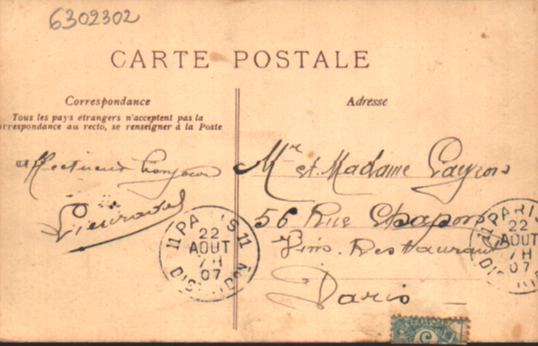 6302302
CARTE POSTALE
Correspondance
Tous les pays étrangers n'acceptent pas la
correspondance au recto, se renseigner à la Poste
Adresse
affectueux bonjour
Mr et Madame
56 Rue Chapon
Vins Restaurant
Paris
PARIS 11
22
AOUT
7H
07
DISTRIBUTION
PARIS
22
AOUT
7H
07